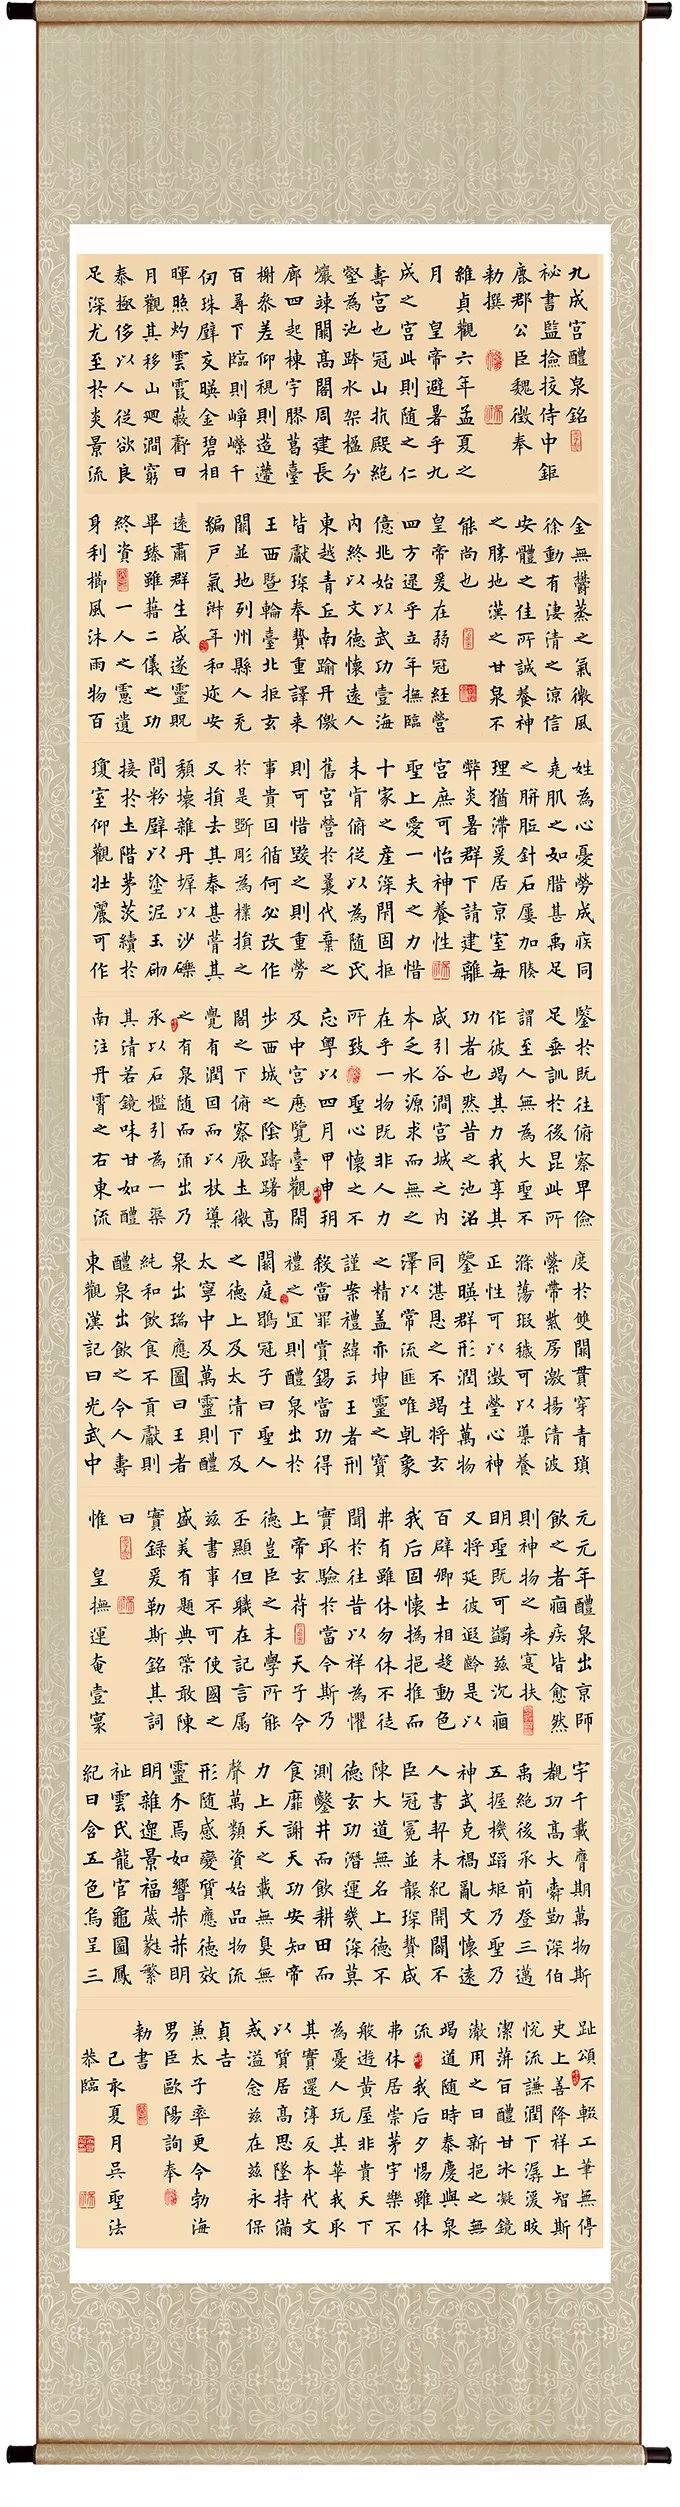 九成宮醴泉銘
祕書監撿挍侍中鉅
鹿郡公臣魏徵奉
勅撰
維貞觀六年孟夏之
月 皇帝避暑乎九
成之宮此則随之仁
壽宮也冠山抗殿絶
壑為池跨水架楹分
巖竦闕高閣周建長
廊四起棟宇膠葛臺
榭叅差仰視則迢遰
百尋下臨則崢嶸千
仞珠璧交暎金碧相
暉照灼雲霞蔽虧日
月觀其移山迴澗窮
泰極侈以人従欲良
足深尤至於炎景流
金無欝蒸之氣微風
徐動有淒清之涼信
安體之佳所誠養神
之勝地漢之甘泉不
能尚也
皇帝爰在弱冠經營
四方逯乎立年撫臨
億兆始以武功壹海
内終以文德懷遠人
東越青丘南踰丹儌
皆獻琛奉贄重譯来
王西暨輪臺北拒玄
闕並地列州縣人充
編戶氣淑年和迩安
遠肅群生咸遂靈貺
畢臻雖藉二儀之功
終資 一人之慮遺
身利櫛風沐雨物百
姓為心憂勞成疾同
堯肌之如腊甚禹足
之胼胝針石屢加腠
理猶滯爰居京室每
弊炎暑群下請建離
宮庶可怡神養性
聖上愛一夫之力惜
十家之產深閉固拒
未肯俯従以為随氏
舊宮營於曩代棄之
則可惜毀之則重勞
事貴因循何必改作
於是斲彫為樸損之
又損去其泰甚葺其
頹壞雜丹墀以沙礫
間粉壁以塗泥玉砌
接於土階茅茨續於
瓊室仰觀壯麗可作
鑒於既往俯察卑儉
足垂訓於後昆此所
謂至人無為大聖不
作彼竭其力我享其
功者也然昔之池沼
咸引谷澗宮城之内
本乏水源求而無之
在乎一物既非人力
所致 聖心懷之不
忘粵以四月甲申朔
及中宮歷覽臺觀閑
步西城之陰躊躇高
閣之下俯察厥土微
覺有潤因而以杖導
之有泉随而涌出乃
承以石檻引為一渠
其清若鏡味甘如醴
南注丹霄之右東流
度於雙闕貫穿青瑣
縈帶紫房激揚清波
滌蕩瑕穢可以導養
正性可以澂瑩心神
鑒暎群形潤生萬物
同湛恩之不竭將玄
澤以常流匪唯乾象
之精盖亦坤靈之寶
謹案禮緯云王者刑
殺當罪賞錫當功得
禮之宜則醴泉出於
闕庭鶡冠子曰聖人
之德上及太清下及
太寧中及萬靈則醴
泉出瑞應圖曰王者
純和飲食不貢獻則
醴泉出飲之令人壽
東觀漢記曰光武中
元元年醴泉出京師
飲之者痼疾皆愈然
則神物之来寔扶
明聖既可蠲茲沉痼
又將延彼遐齡是以
百辟卿士相趍動色
我后固懷撝挹推而
弗有雖休勿休不徒
聞於往昔以祥為懼
實取驗於當今斯乃
上帝玄符 天子令
德豈臣之末學所能
丕顯但職在記言属
茲書事不可使國之
盛美有遺典策敢陳
實錄爰勒斯銘其詞
曰
惟 皇撫運奄壹寰
宇千載膺期萬物斯
覩功高大舜勤深伯
禹絶後承前登三邁
五握機蹈矩乃聖乃
神武克禍亂文懷遠
人書契未紀開闢不
臣冠冕並襲琛贄咸
陳大道無名上德不
德玄功潛運幾深莫
測鑿井而飲耕田而
食靡謝天功安知帝
力上天之載無臭無
聲萬類資始品物流
形随感變質應德效
靈介焉如響赫赫明
明雜遝景福葳蕤繁
祉雲氏龍官龜圖鳳
紀日含五色烏呈三
趾頌不輟工筆無停
史上善降祥上智斯
悅流謙潤下潺湲皎
潔蓱旨醴甘冰凝鏡
澈用之日新挹之無
竭道随時泰慶與泉
流 我后夕惕雖休
弗休居崇茅宇樂不
般遊黃屋非貴天下
為憂人玩其華我取
其實還淳反本代文
以質居高思墜持滿
戒溢念茲在茲永保
貞吉
兼太子率更令勃海
男臣歐陽詢奉
勅書
己亥夏月吳聖法
恭臨